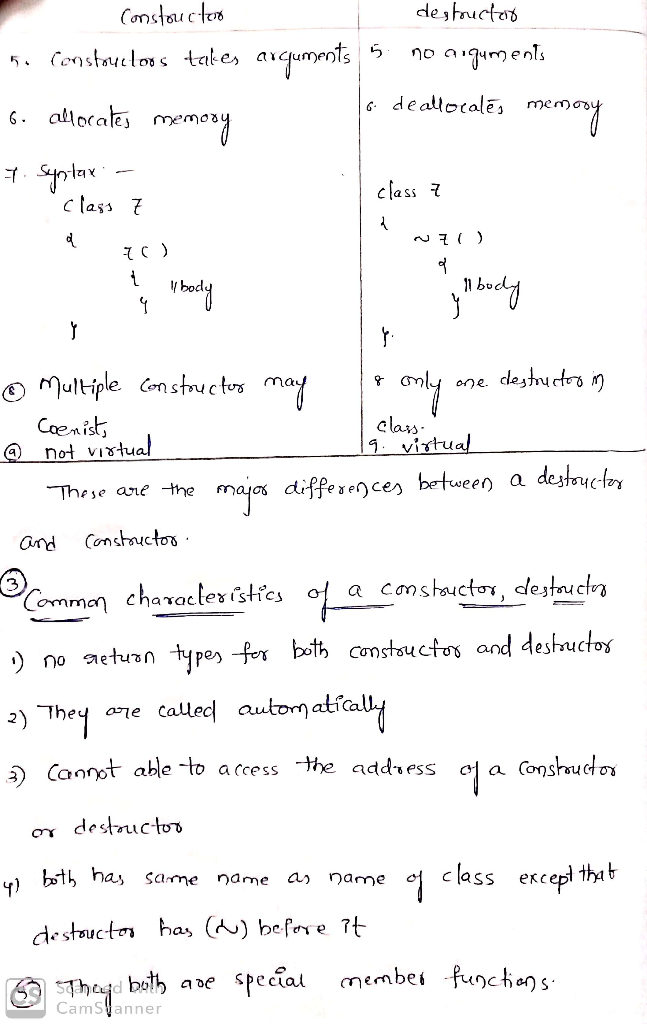 Constructor destructor
5. Constructors takes arguments 5. no arguments
6. allocates memory 6. deallocates memory
7. Syntax :-
Class Z class Z
{ {
Z() ~Z()
{ {
//body //body
} }
} }.
⑧ Multiple Constructor may 8 only one destructor in
Coexists class.
⑨ not virtual 9. virtual
These are the major differences between a destructor
and Constructor.
③ Common characteristics of a constructor, destructor
1) no return types for both constructor and destructor
2) They are called automatically
3) Cannot able to access the address of a Constructor
or destructor
4) both has same name as name of class except that
destructor has (~) before it
⑤ They both are special member functions.
CS Scanned with
CamScanner